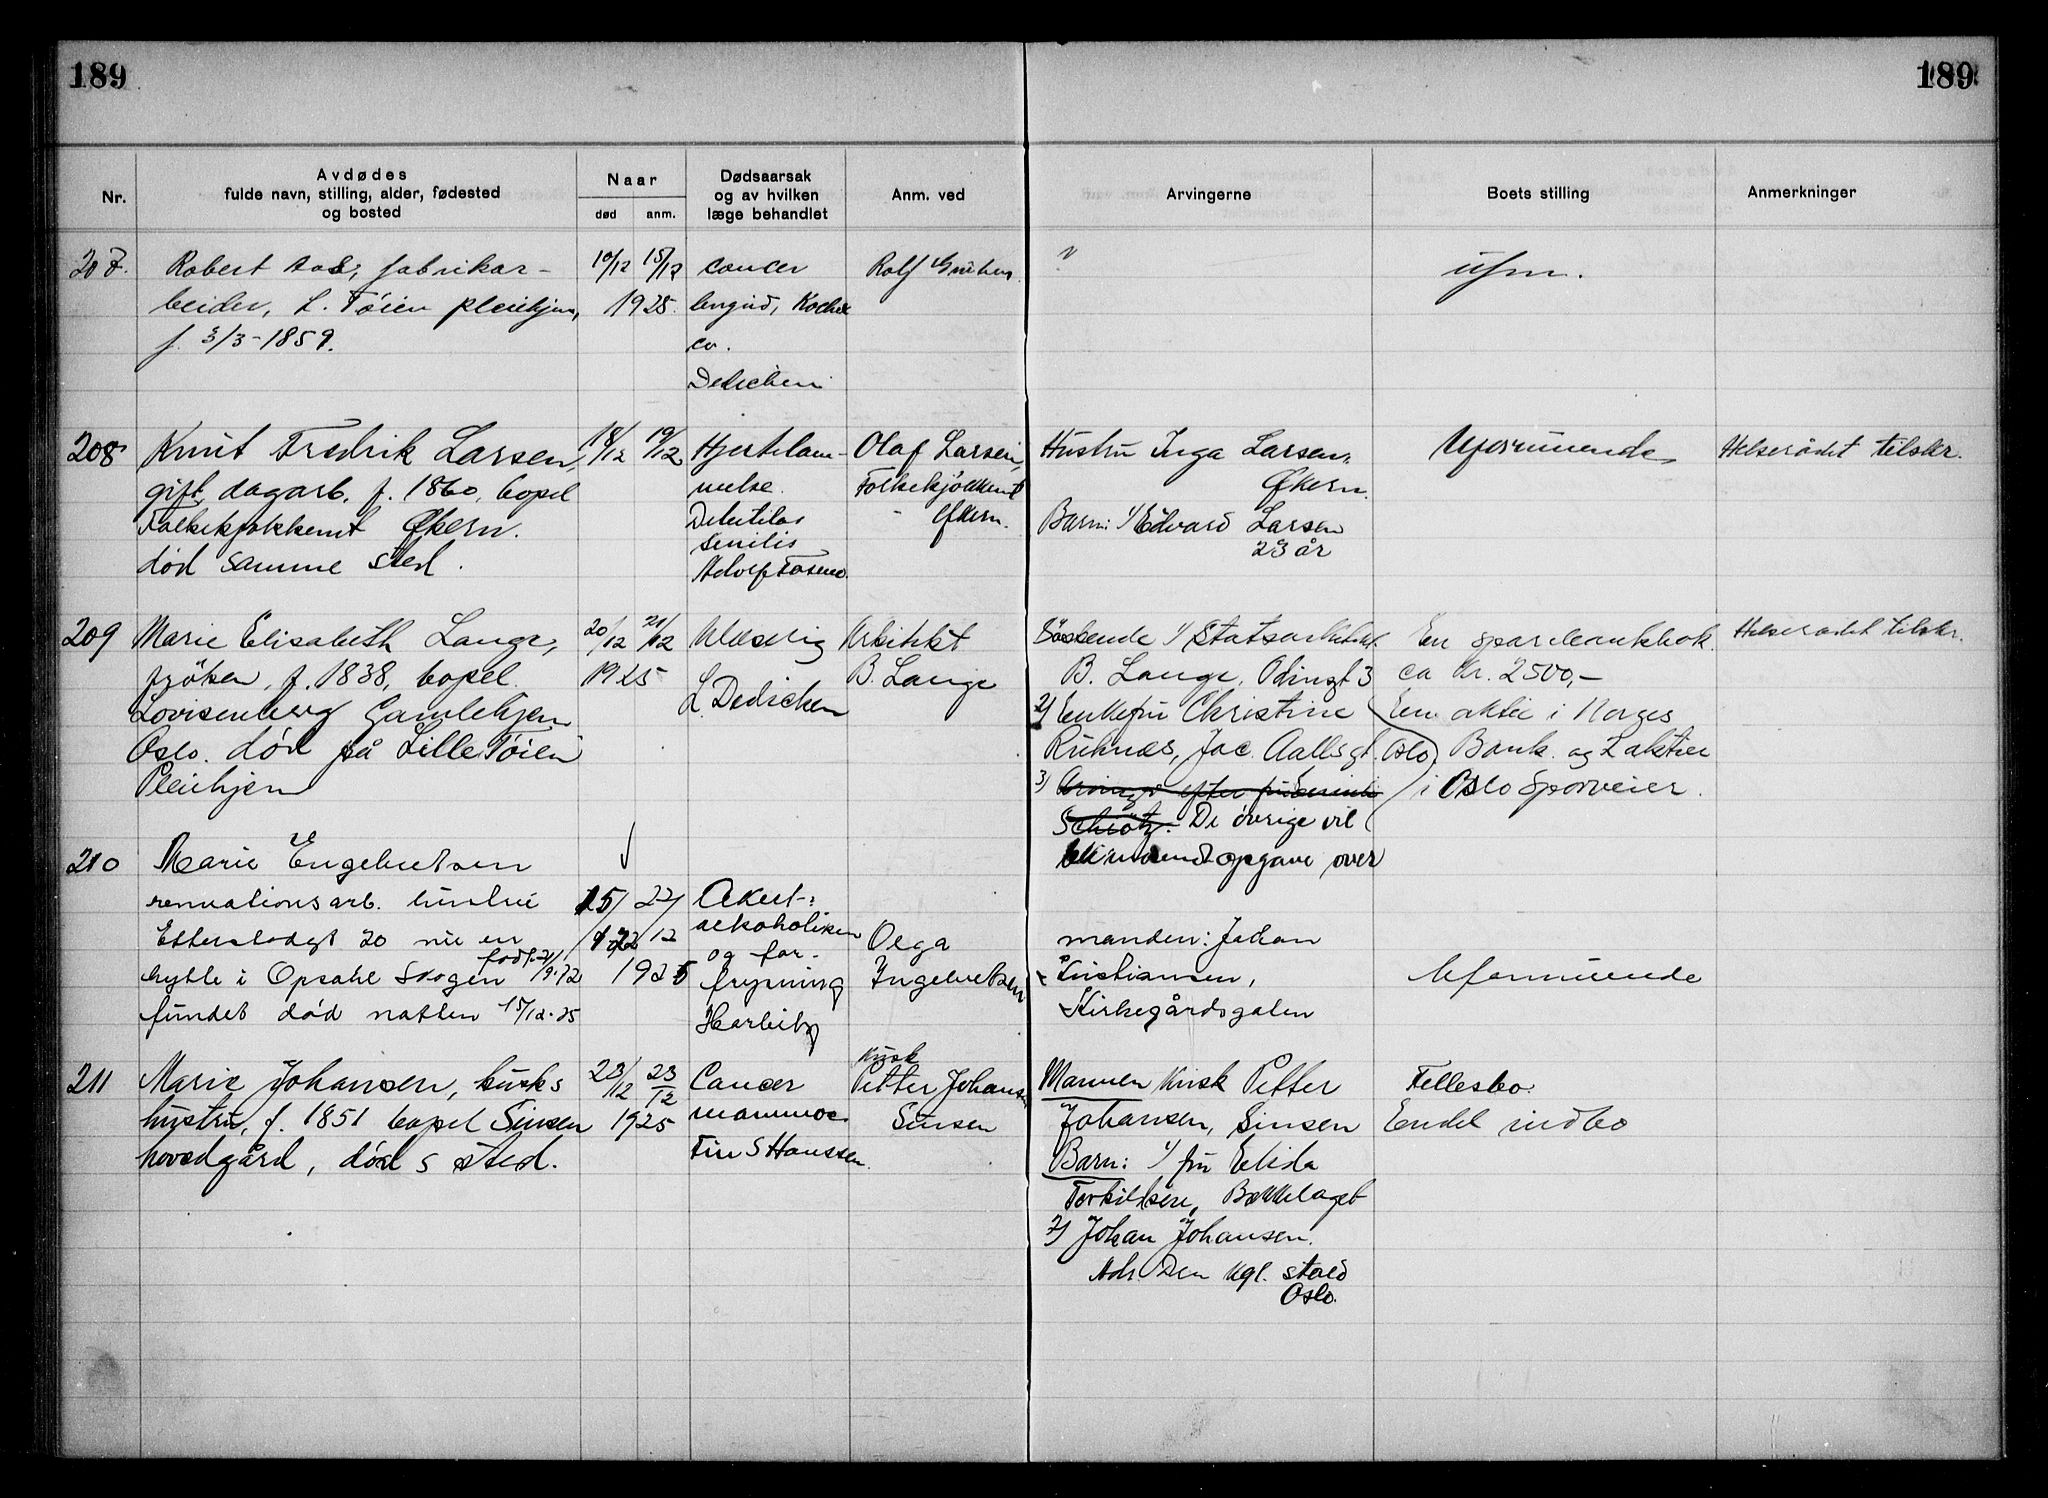 189
189
Nr.
Avdødes
fulde navn, stilling, alder, fødested
og bosted
Naar
død
anm.
Dødsaarsak
og av hvilken
læge behandlet
Anm. ved
Arvingerne
Boets stilling
Anmerkninger
207.
Robert Aas, fabrikar-
beider, L. Tøien pleiehjem,
f. 3/3-1859.
10/12 15/12
1925.
cancer
Dedichen
Rolf
ufm.
208
Knut Fredrik Larsen,
gift, dagarb. f. 1860, bopel
Folkekjøkkenet Økern.
død samme sted.
18/12 19/12
Hjertelam-
melse.
Debilitas
senilis
Adolf
Olaf Larsen,
Folkekjøkkenet
Økern.
Hustru Inga Larsen,
Økern.
Barn: 1/ Edvard Larsen
23 år
Uformuende
Helserådet tilskr.
209
Marie Elisabeth Lange,
frøken, f. 1838, bopel
Lovisenberg Gamlehjem
Oslo. død på Lille Tøien
Pleiehjem
20/12 21/12
1925
L. Dedichen
Arkitekt
B. Lange
Søskende 1/ Statsarkitekt
B. Lange, Odinsgt 3
2/ Enkefru Christine
Ruknæs, Jac. Aallsgt. Oslo
3/ Arvinger efter fru
Schiøtz. De øvrige vil
bli opgave over
En sparebankbok
ca kr. 2500,-
En aktie i Norges
Bank og 2 aktier
i Oslo Sporveier.
Helserådet tilskr.
210
Marie Engebretsen
renovationsarb. hustru
Etterstadgt 20 nu en
hytte i Opsahl Skogen født 21/9-72
fundet død natten 15/12-25
15/12 22/12
1925
Akut
alkoholisme
og for-
frysning
Harbitz
Olga
Ingebretsen
manden: Johan
Kristiansen,
Kirkegårdsgaten
Uformuende
211
Marie Johansen, kusks
hustru, f. 1851 bopel Sinsen
hovedgård, død s sted.
23/12 23/12
1925
Cancer
mammae
Fin S Hanssen.
Kusk
Petter Johansen
Sinsen
Mannen Kusk Petter
Johansen, Sinsen
Barn: 1/ fru Elida
Torkildsen, Bækkelaget
2/ Johan Johansen.
Adr. Den kgl. stald
Oslo.
Fellesbo.
Endel indbo